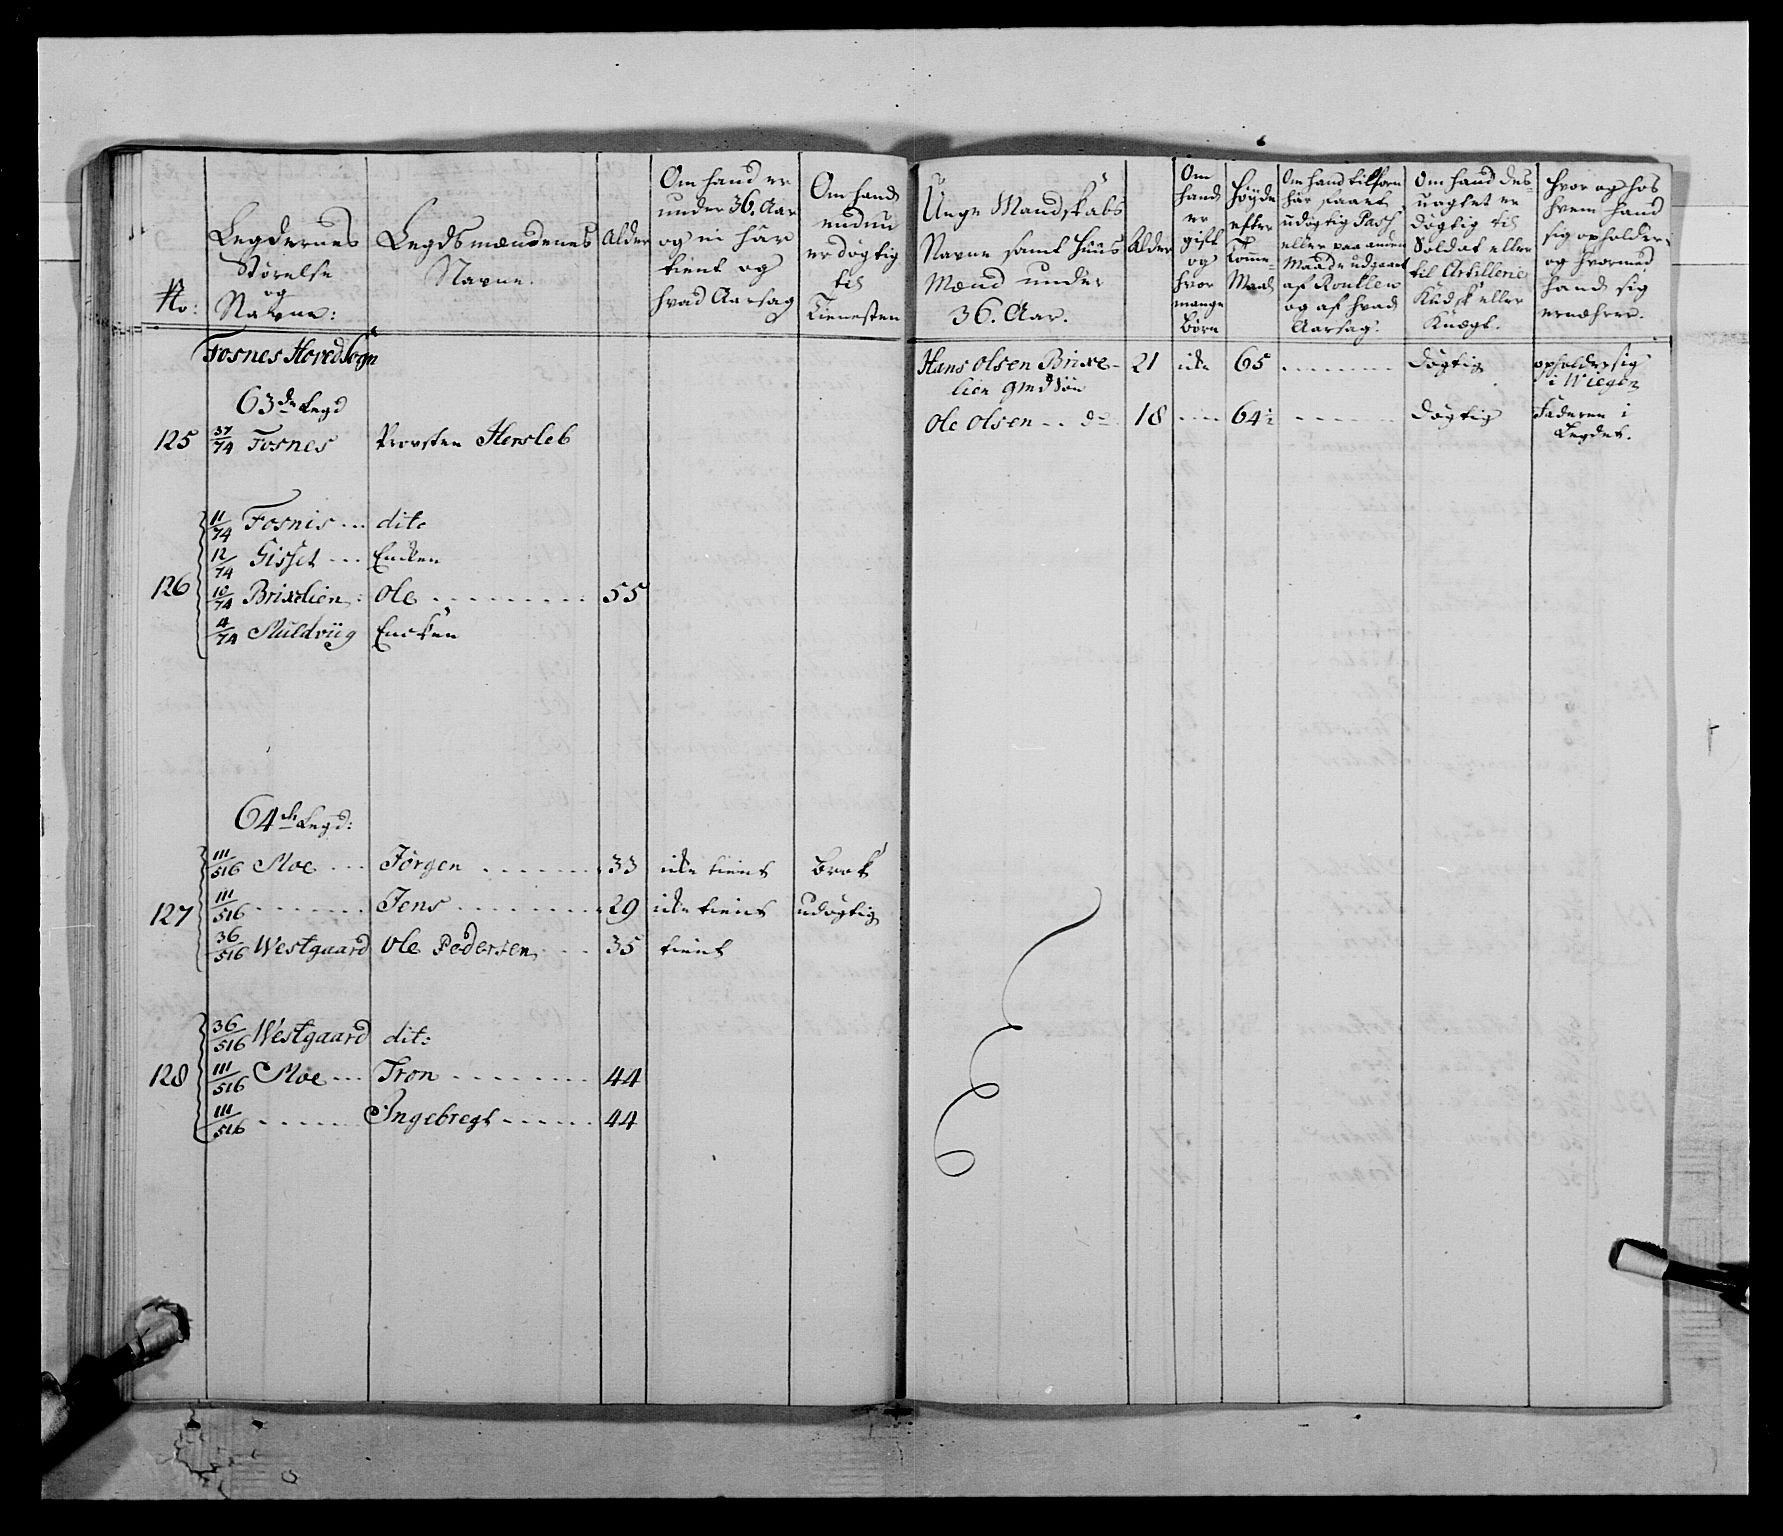 No:
Legdernes
Størelse
og
Navne:
Legdsmændenes
Navne.
Alder
Om hand er
under 36. Aar
og ei här
tient og
hvad Aarsag
Om hand
endnu
er døgtig
til
Tienesten
Fosnes Hovedsogn
63de Legd
125 37/74 Fosnes Provsten Hersleb
11/74 Fosnis ... dito
12/74 Gisset ... Encken
126 10/74 Brixelien: Ole ......... 55
4/74 Müldvüg Encken
64de Legd:
111/516 Moe ... Jörgen ....... 33 icke tient Brok
127 111/516 ....... Jens ......... 29 icke tient udøgtig
36/516 Westgaard Ole Pedersen ... 35 tient
36/516 Westgaard dit:
128 111/516 Moe ... Tron ......... 44
111/516 ....... Ingebregt ...... 44
Unge Mandskabs
Navne samt Huus
Mænd under
36. Aar.
Alder
Om
hand
er
gift
og
hvor
mange
börn
Höyde
efter
Tomme-
Maal
Om hand tilforn
här faaet
udögtig Pass
eller paa anden
Maade udgaaet
af Roullen
og af hvad
Aarsag.
Om hand des-
uagtet er
døgtig til
Soldat eller
til Artillerie
Küdsk eller
Knægt.
Hvor og hos
hvem hand
sig opholder
og hvormed
hand sig
ernæhrer.
Hans Olsen Brixe- 21 icke 65 ........ døgtig opholder sig
lien gmdsön i Wiegen
Ole Olsen .. do 18 .... 64½ ....... døgtig Faderen i
Legdet.